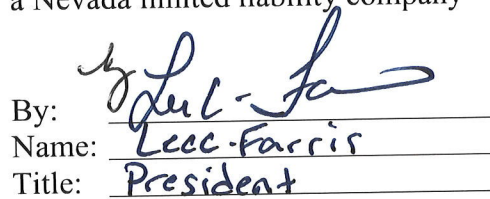 a Nevada limited liability company
By:
Name: Lee C. Farris
Title: President